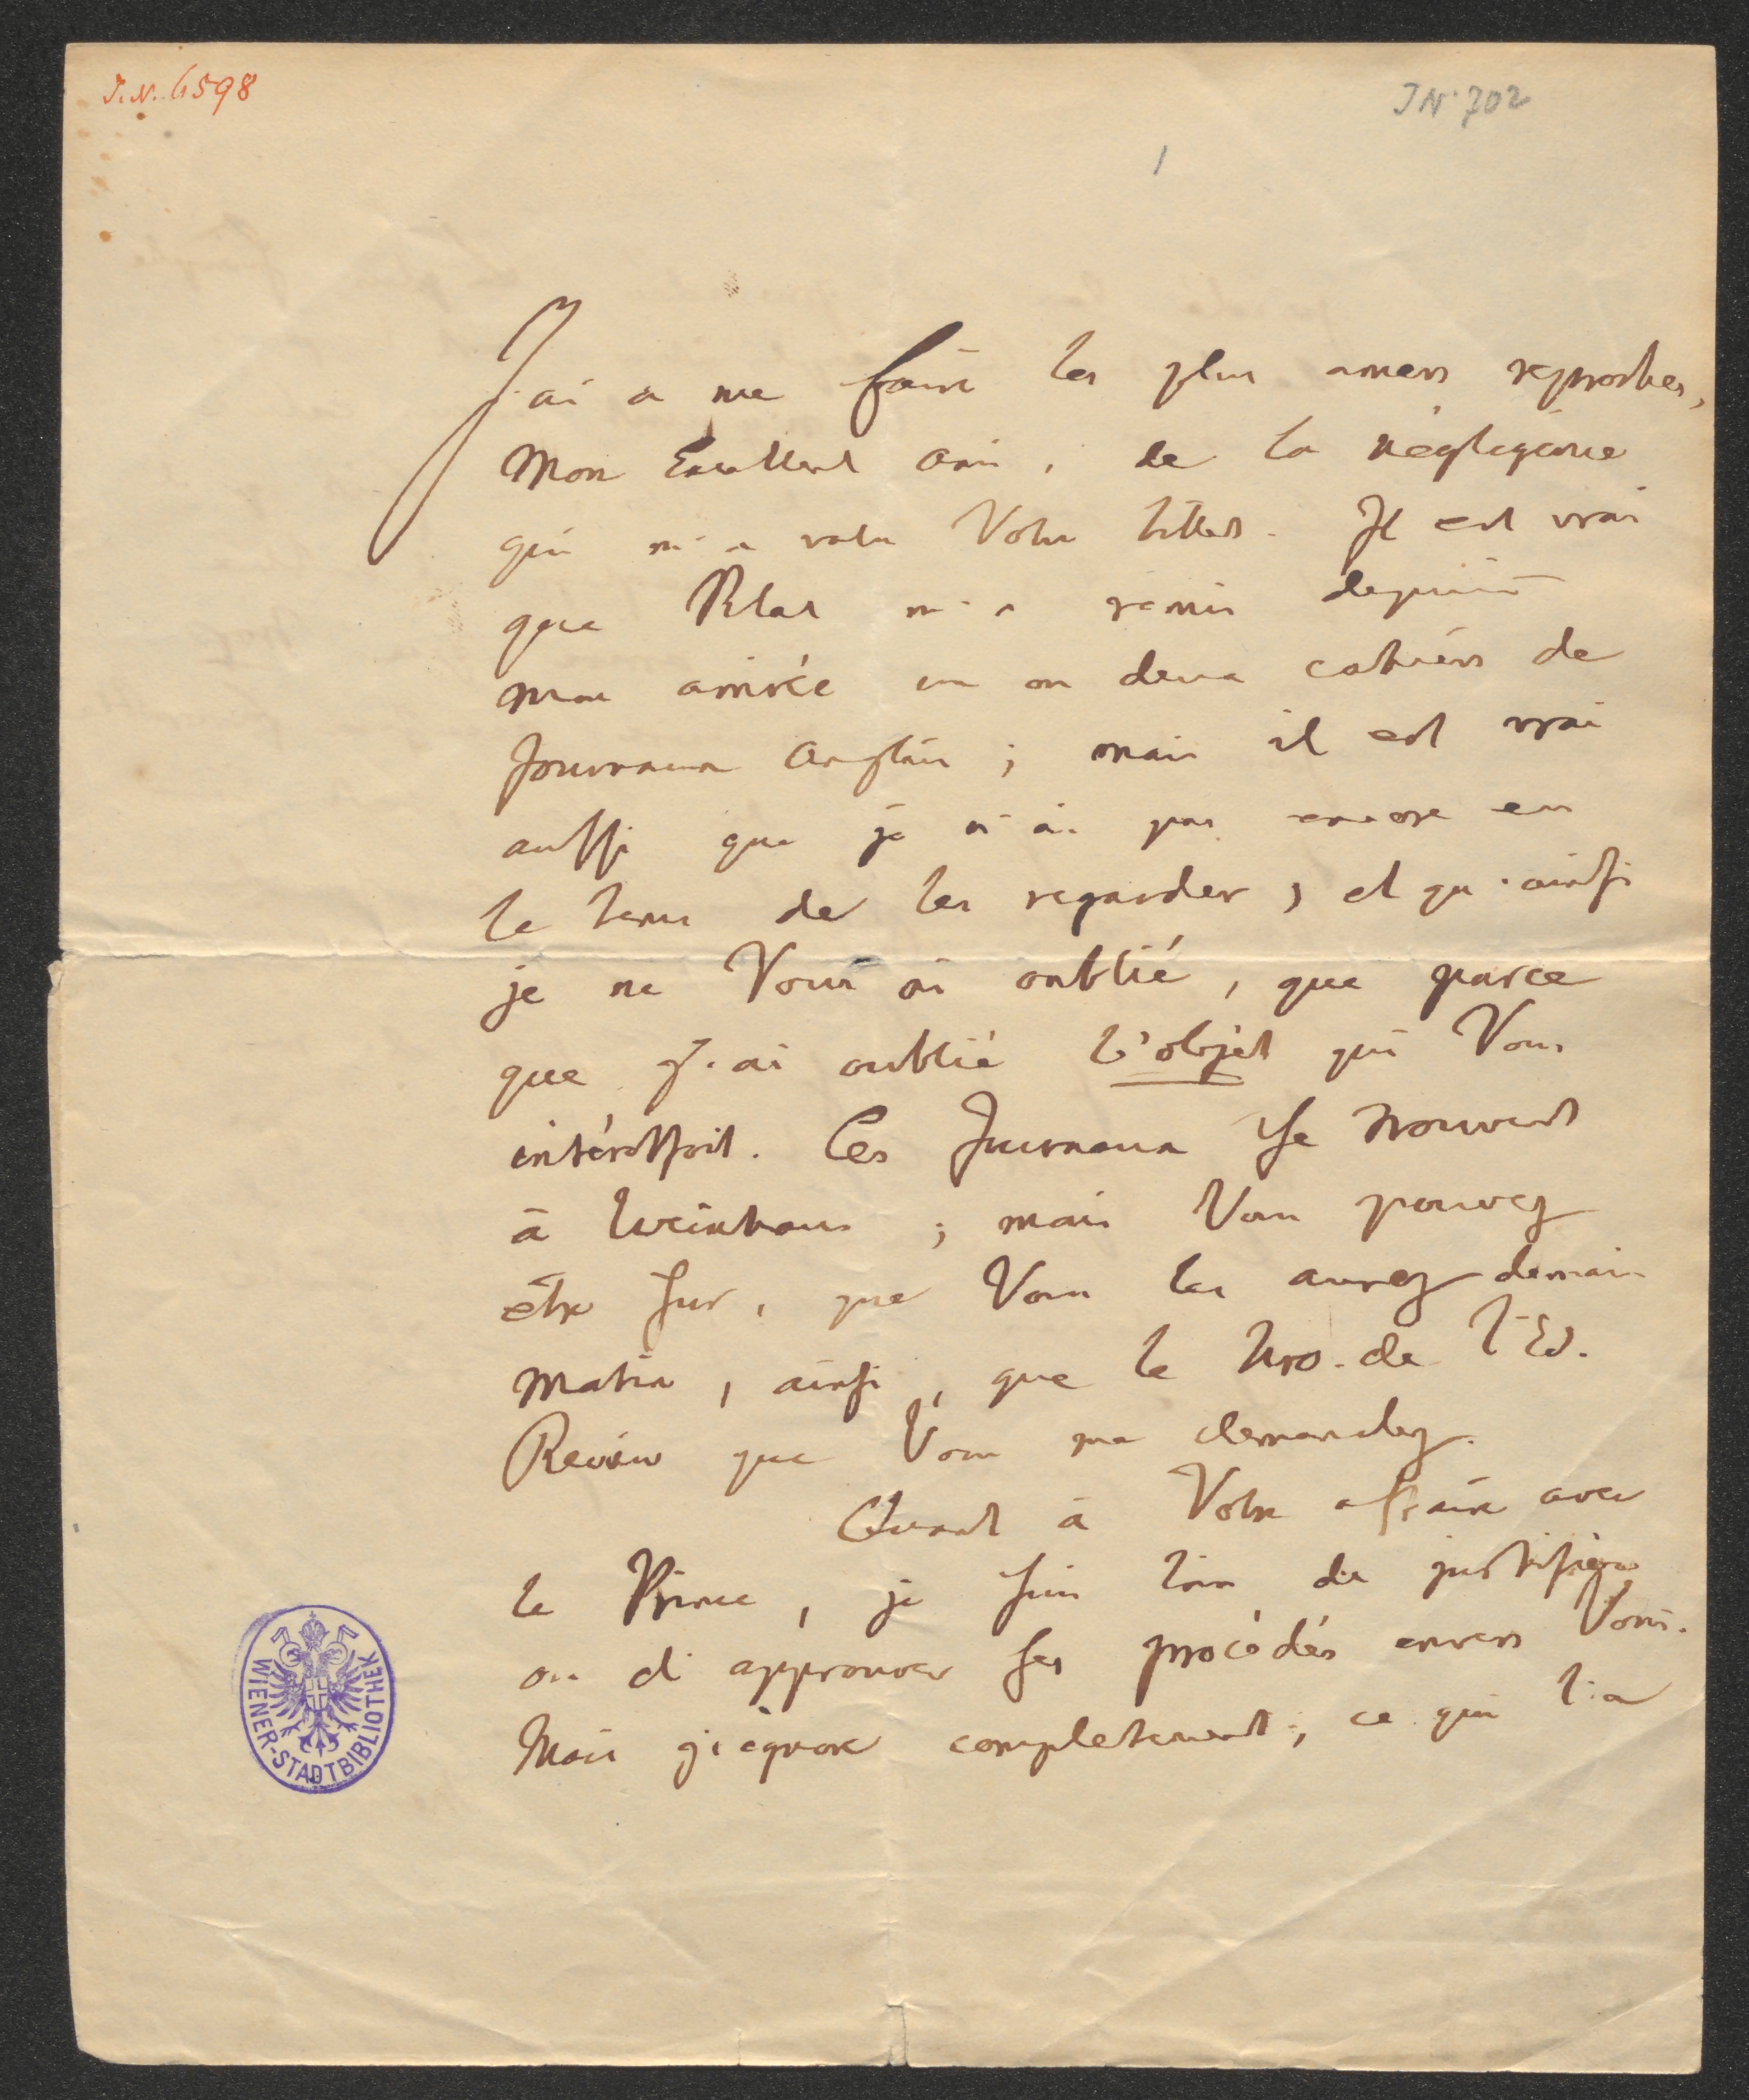 J.N. 6598
JN 702
1
J'ai à me faire les plus amers reproches,
Mon Excellent Ami, de la négligence
qui m'a valu Votre billet. Il est vrai
que Pilat m'a remis depuis
mon arrivée un ou deux cahiers de
Journaux Anglais ; mais il est vrai
aussi que je n'ai pas encore eu
le tems de les regarder, et qu'ainsi
je ne Vous ai oublié, que parce
que j'ai oublié l'objet qui Vous
intéressoit. Ces Journaux se trouvent
à Weinhaus ; mais Vous pouvez
être sur, que Vous les aurez demain
matin, ainsi, que le Nro. de l'Ed.
Review que Vous me demandez.
Quant à Votre affaire avec
le Prince, je suis loin de justifier
ou d'approuver ses procédés envers Vous.
Mais j'ignore completement, ce qui l'a
WIENER-STADTBIBLIOTHEK